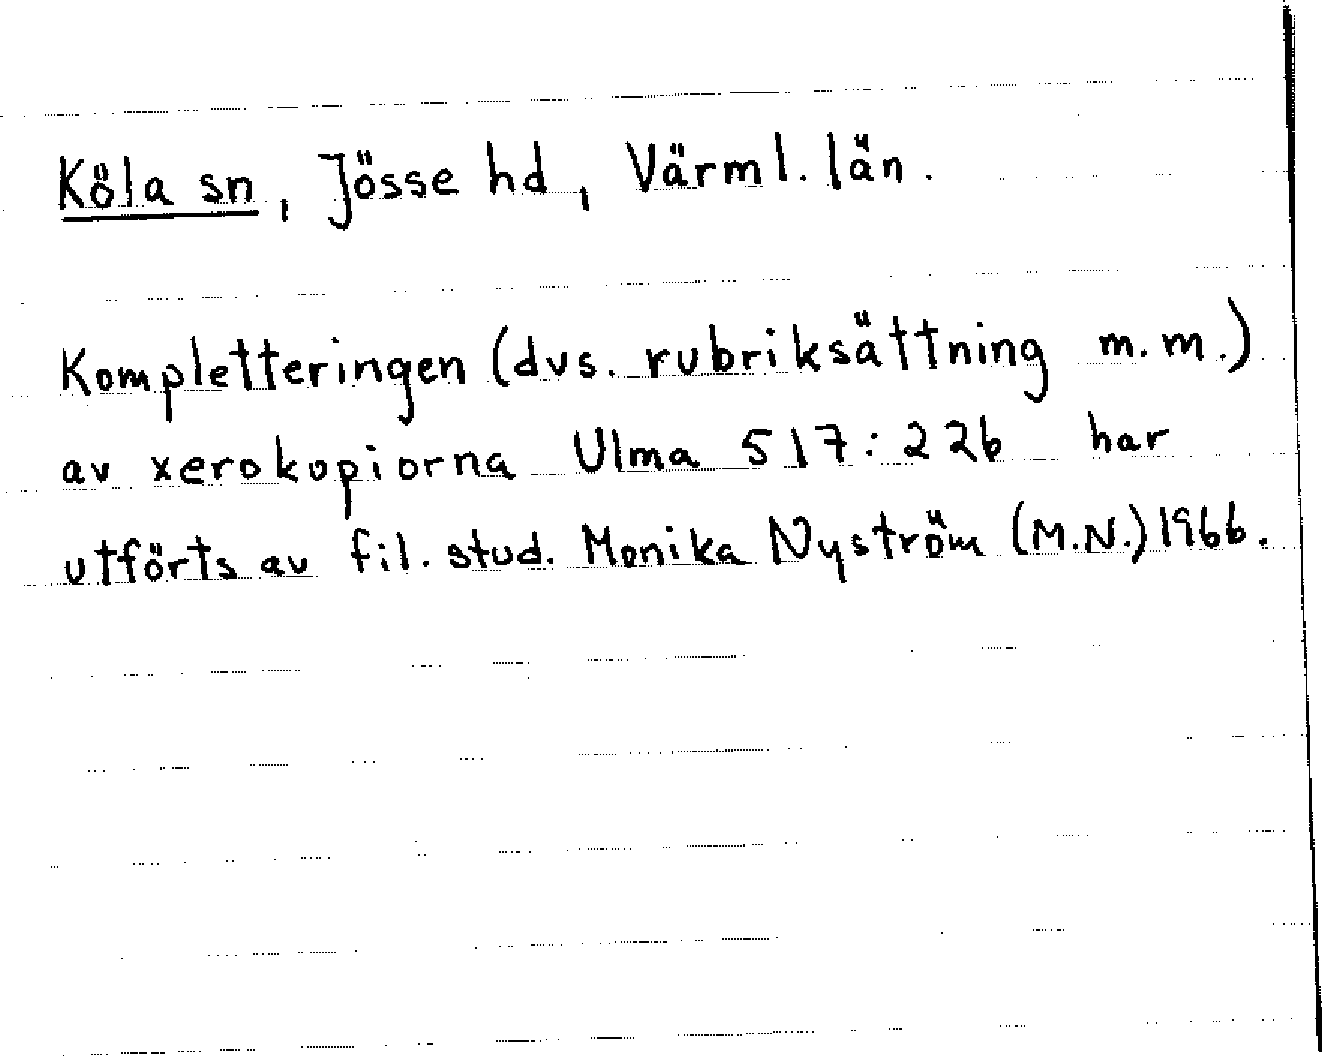 Köla sn, Jösse hd, Värml. län.
Kompletteringen (dvs. rubriksättning m.m.)
av xerokopiorna Ulma 517:226 har
utförts av fil. stud. Monika Nyström (M.N.) 1966.